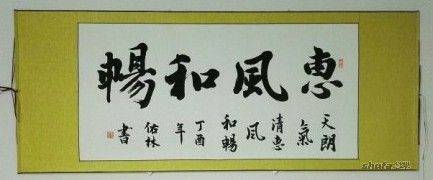 惠風和暢
天朗
氣
清惠
風
和暢
丁酉
年
佑林
書